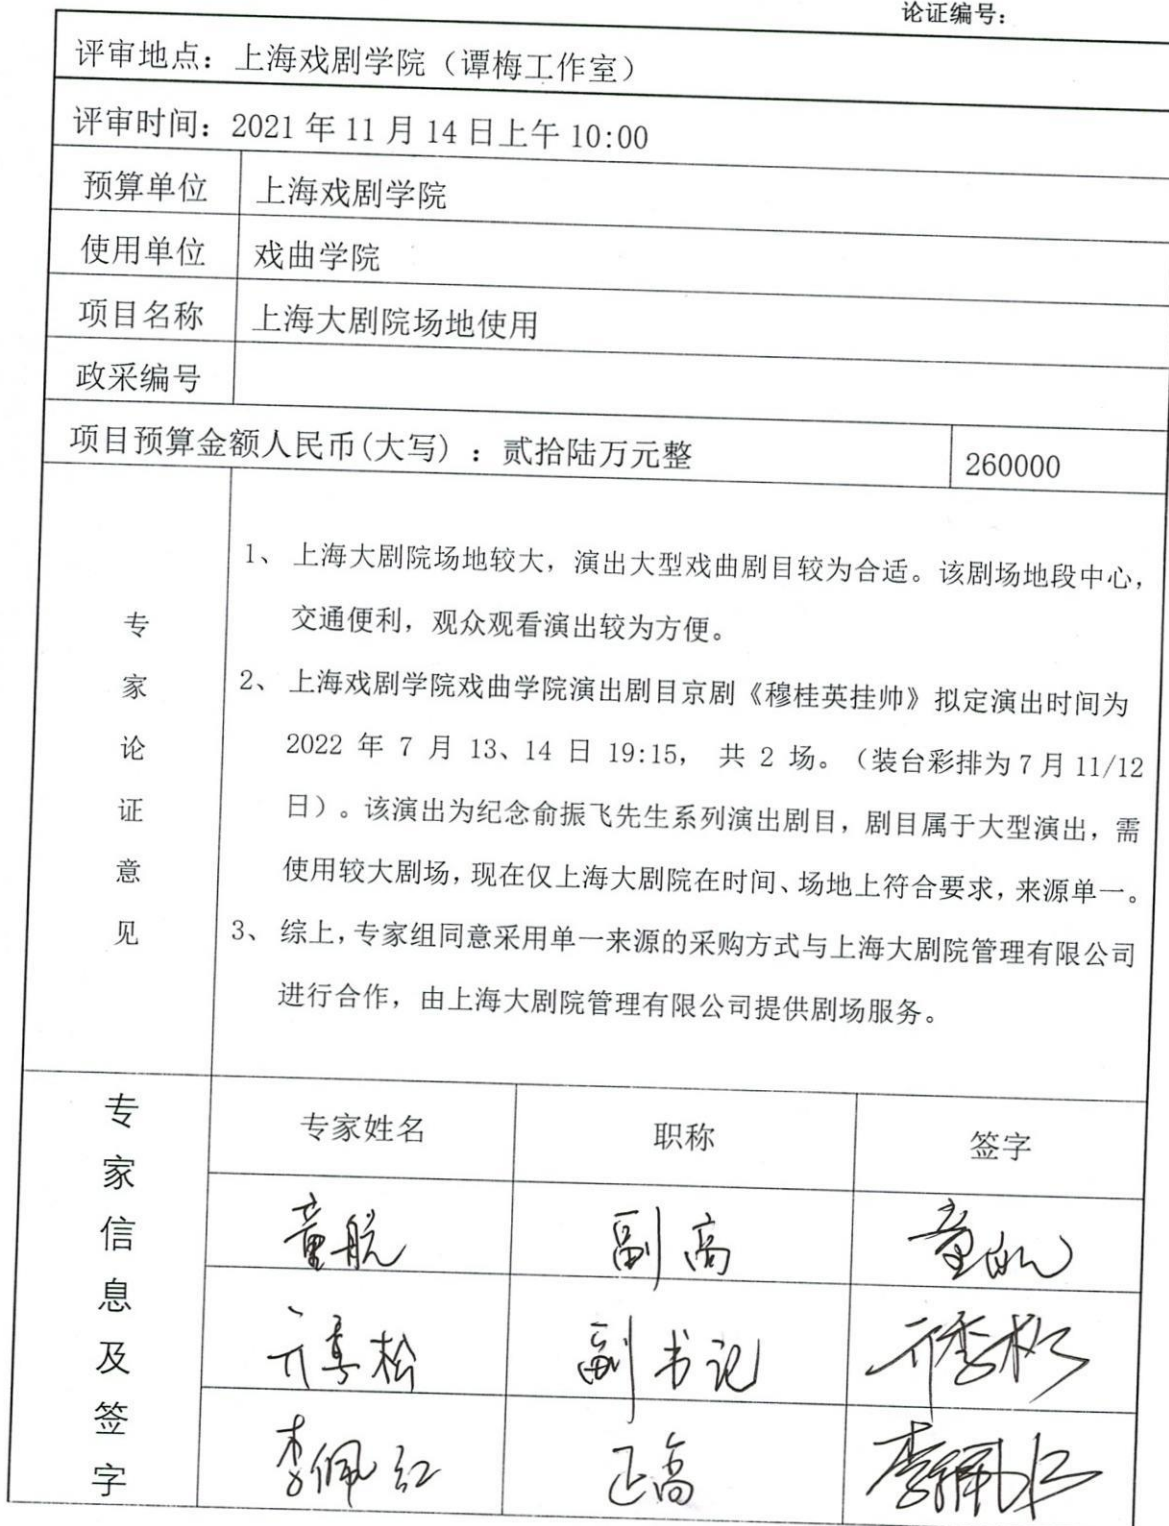 论证编号：
评审地点：上海戏剧学院（谭梅工作室）
评审时间：2021 年 11 月 14 日上午 10:00
预算单位 上海戏剧学院
使用单位 戏曲学院
项目名称 上海大剧院场地使用
政采编号
项目预算金额人民币(大写)：贰拾陆万元整 260000
专家论证意见
1、 上海大剧院场地较大，演出大型戏曲剧目较为合适。该剧场地段中心，
交通便利，观众观看演出较为方便。
2、 上海戏剧学院戏曲学院演出剧目京剧《穆桂英挂帅》拟定演出时间为
2022 年 7 月 13、14 日 19:15， 共 2 场。（装台彩排为 7 月 11/12
日）。该演出为纪念俞振飞先生系列演出剧目，剧目属于大型演出，需
使用较大剧场，现在仅上海大剧院在时间、场地上符合要求，来源单一。
3、 综上，专家组同意采用单一来源的采购方式与上海大剧院管理有限公司
进行合作，由上海大剧院管理有限公司提供剧场服务。
专家信息及签字
专家姓名 职称 签字
童航 副高 童航
季松 副书记 季松
李佩红 正高 李佩红